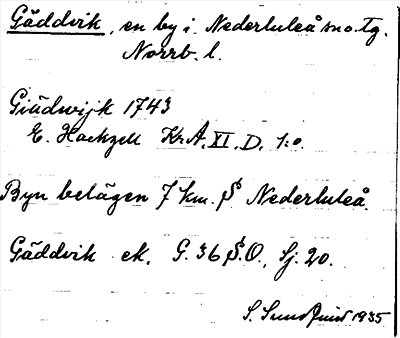 Gäddvik, en by i Nederluleå sn o. tg.
Norrb. l.
Giädwijk 1743
E. Hackzell Kr.A. XI. D. 1:o.
Byn belägen 7 km. S Nederluleå.
Gäddvik ek. G. 36 S.O., Sj. 20.
S. Sundqvist 1935